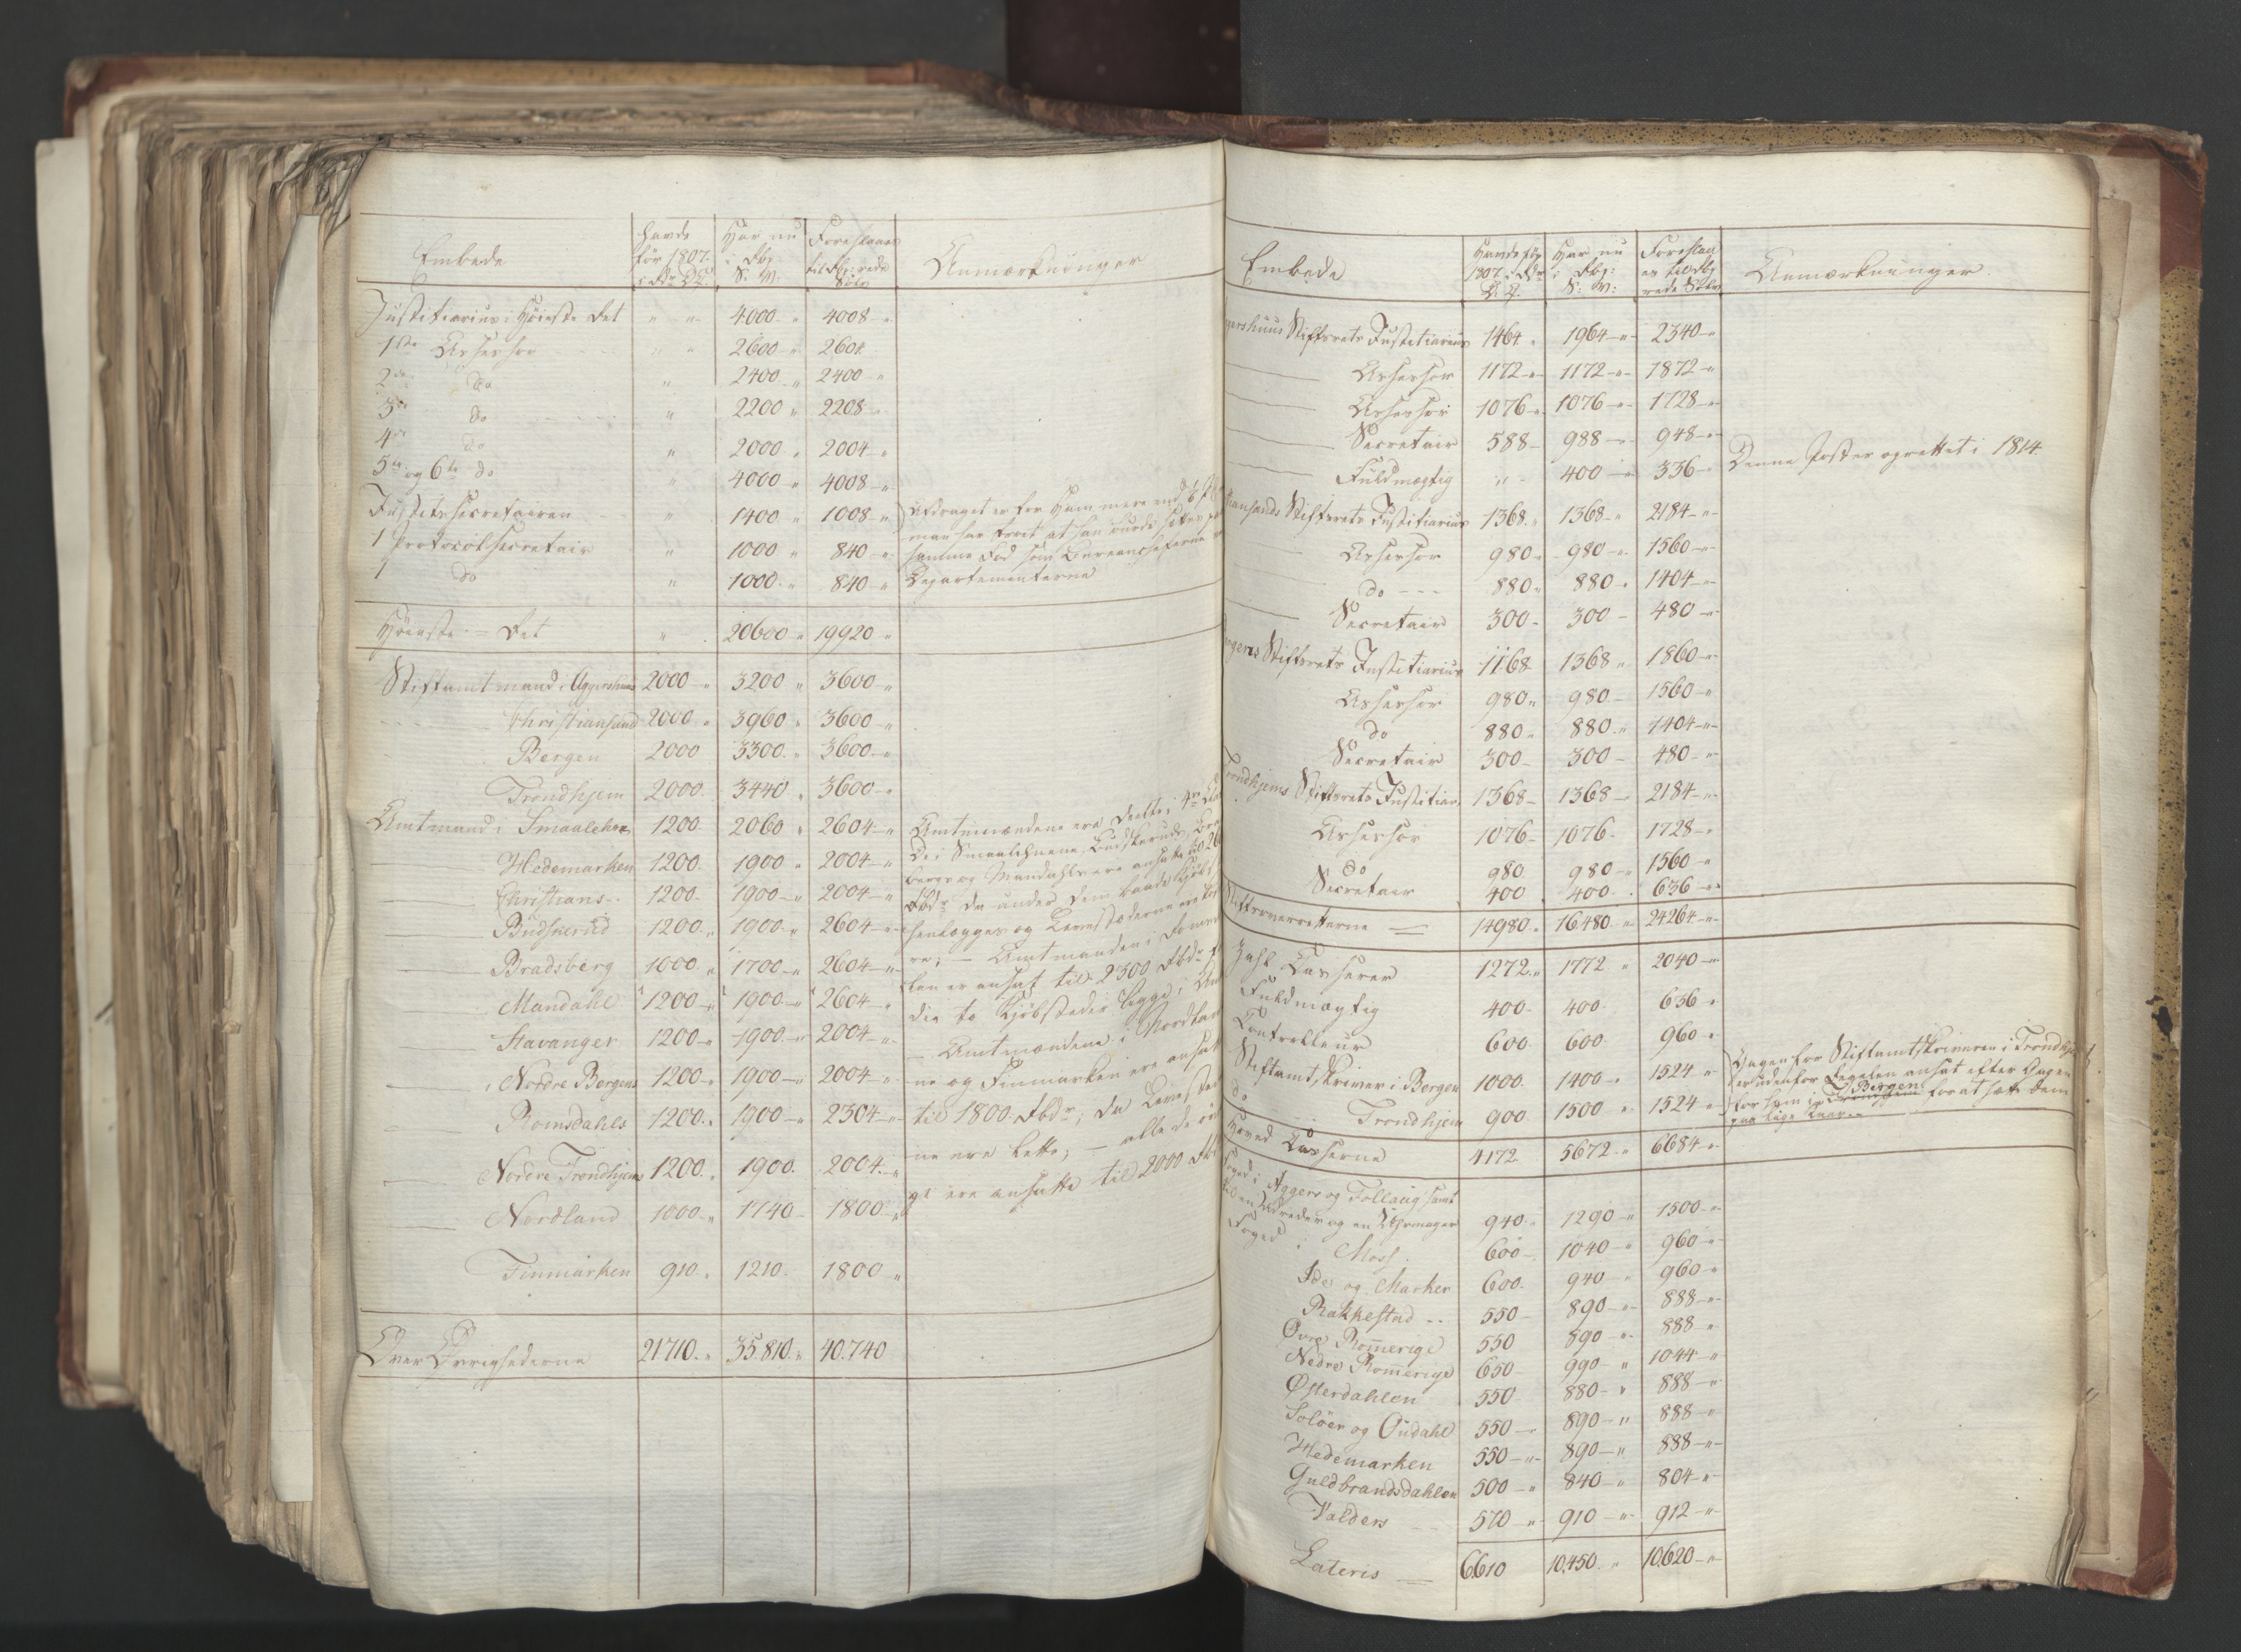 Embede | Havde før 1807. i Rdr D.C. | Har nu i Rbd S: V: | Foreslaaes til Rbd rede Sølv | Anmærkninger
Justitiarius i Høieste Ret " " 4000 " 4008 "
1ste Assessor " " 2600 " 2604
2de do " 2400 " 2400 "
3die do " 2200 " 2208 "
4de do " 2000 " 2004 "
5te og 6te do " 4000 " 4008 "
Justitssecretairen " 1400 " 1008 " Afdraget er for Ham mere end
1 Protocolsecretair " 1000 " 840 " man har troet at han burde sættes paa
1 do " 1000 " 840 " samme Fod som Bureaucheferne
Departementerne
Høieste-Ret " 20600 " 19920 "
Stiftamtmand i Aggershuus 2000 " 3200 " 3600 "
Christiansand 2000 " 3960 " 3600 "
Bergen 2000 3300 " 3600 "
Trondhjem 2000 3440 " 3600 "
Amtmand i Smaalehne 1200 2060 " 2604 "
Hedemarken 1200 1900 " 2004 "
Christians 1200 1900 " 2004 "
Budskerud 1200 " 1900 " 2604 "
Bradsberg 1000 " 1700 " 2604 "
Mandahl 1200 " 1900 " 2604 "
Stavanger 1200 " 1900 " 2004 "
Nordre Bergens 1200 " 1900 " 2004 "
Romsdahls 1200 " 1900 " 2304 "
Nordre Trondhjems 1200 " 1900 2004 "
Nordland 1000 " 1740 1800 "
Finmarken 910 " 1210 1800 "
Amtmændene ere deelte i 4re
De i Smaalehnene, Budskeruds,
bergs og Mandahls ere ansatte til
Rbdr da under dem baade
henlægges og Leveræderne ere
re; — Amtmanden i Romsda
len er ansat til 2300 Rbdr
die to Kjøbstæder ligge i
— Amtmændene i Nordlan
ne og Finmarken ere ansatte
til 1800 Rbdr; da
ne ere lette; — alle de øvri
ge ere ansatte til 2000 Rbd
Over Øvrighederne 21710 " 35810 " 40.740
Embede | Havde før 1807. i Rdr D.C. | Har nu i Rbd: S: V: | Foreslaaes til Rbd rede Sølv | Anmærkninger.
gershuus Stiftsrets Justitiarius 1464 " 1964 " 2340 "
Assessor 1172 " 1172 " 1872 "
Assessor 1076 " 1076 " 1728 "
Secretair 588 988 " 948 "
Fuldmægtig " 400 " 336 " Denne Post er oprettet i 1814
tiansands Stiftsrets Justitiarius 1368 " 1368 " 2184 "
Assessor 980 " 980 " 1560 "
do 880 " 880 " 1404 "
Secretair 300 300 480 "
rgens Stiftsrets Justitiarius 1168 1368 " 1860 "
Assessor 980 " 980 1560 "
do 880 " 880 " 1404 "
Secretair 300 300 480 "
Trondhjems Stiftsrets Justitiar 1368 1368 2184 "
Assessor 1076 1076 1728 "
do 980 980 " 1560 "
Secretair 400 400 636 "
Stiftsoverretterne 14980 " 16480 " 24264 "
Zahl Casserer 1272 " 1772 " 2040 "
Fuldmægtig 400 400 636 "
Controlleur 600 600 960 "
Stiftamtskriver i Bergen 1000 1400 " 1524 "
do Trondhjem 900 1500 " 1524 "
Gagen for Stiftamtskriveren i Trondhje
er udenfor Regelen ansat efter Gagen
for ham i Bergen for at sætte dem
paa lige Kaar
Hoved Casserne 4172 5672 " 6684 "
Foged i Aggers og Follaug samt
til en Udreder og en Uhrmager 940 " 1290 " 1500 "
Foged i Moss 600 1040 " 960 "
Ide og Marker 600 940 " 960 "
Rakkestad 550 890 " 888 "
Øvre Romerige 550 890 " 888 "
Nedre Romerige 650 990 " 1044 "
Østerdahlen 550 880 " 888 "
Soløer og Oudahl 550 890 " 888 "
Hedemarken 550 " 890 " 888 "
Guldbrandsdahlen 500 " 840 " 804 "
Valders 570 " 910 " 912 "
Lateris 6610 10,450 " 10620 "